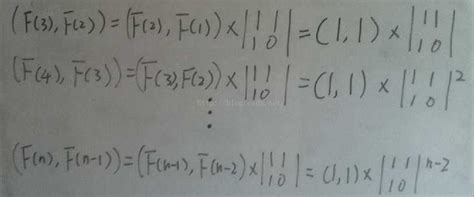 (F(3), F(2)) = (F(2), F(1)) × |1 1; 1 0| = (1, 1) × |1 1; 1 0|
(F(4), F(3)) = (F(3), F(2)) × |1 1; 1 0| = (1, 1) × |1 1; 1 0|²
⋮
(F(n), F(n-1)) = (F(n-1), F(n-2) × |1 1; 1 0| = (1, 1) × |1 1; 1 0|ⁿ⁻²